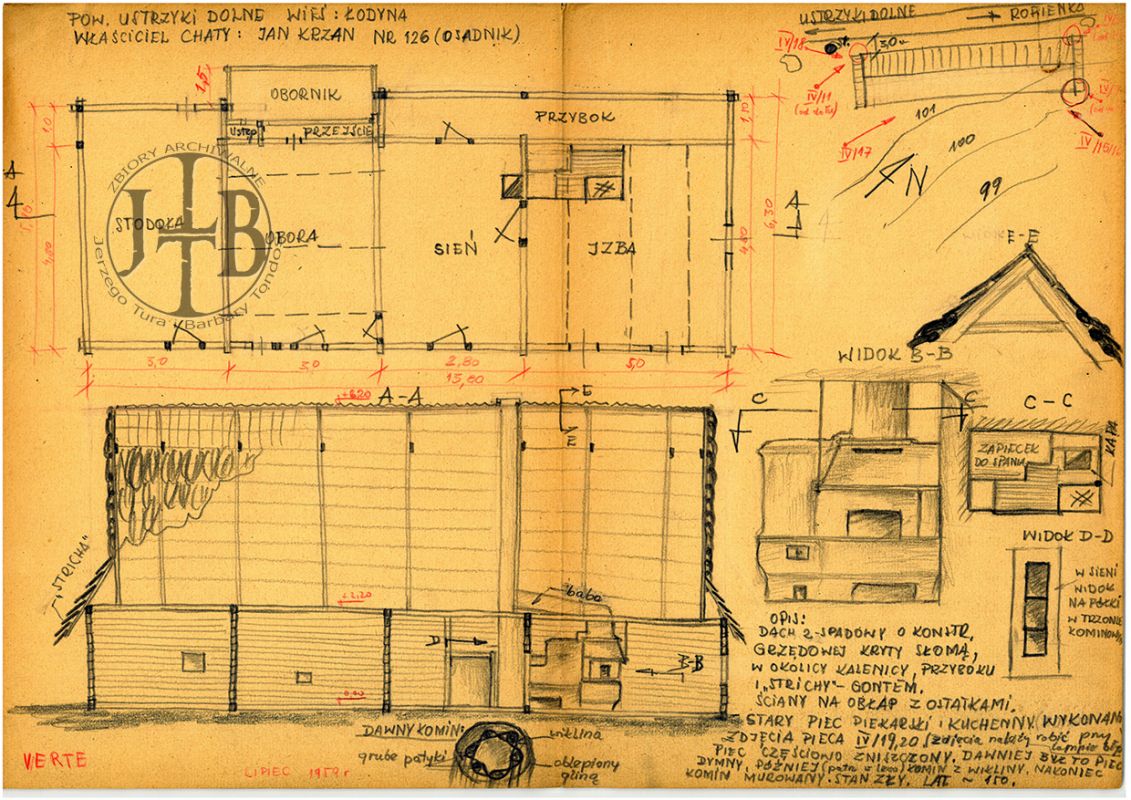 POW. USTRZYKI DOLNE WIEŚ: ŁODYNA
WŁAŚCICIEL CHATY: JAN KRZAN NR 126 (OSADNIK)
USTRZYKI DOLNE
ROPIENKA
IV/18
St.
3,0
IV/11
IV/17
101
100
99
N
1,5
OBORNIK
Ustęp
PRZEJŚCIE
PRZYBOK
1,0
4,80
A
STODOŁA
OBORA
SIEŃ
IZBA
6,30
4,80
A
ZBIORY ARCHIWALNE
JTB
Jerzego Tura i Barbary Tondos
3,0
3,0
2,80
5,0
13,60
E-E
WIDOK B-B
A-A
+6,20
E
C
C
C-C
ZAPIECEK
DO SPANIA
KAPA
WIDOK D-D
W SIENI
WIDOK
NA PÓŁKI
W TRZONIE
KOMINOWYM
"STRICHA"
+2,20
"baba"
D
B-B
OPIS:
DACH 2-SPADOWY O KONSTR.
GRZĘDOWEJ KRYTY SŁOMĄ,
W OKOLICY KALENICY, PRZYBOKU
I „STRICHY" – GONTEM.
ŚCIANY NA OBŁAP Z OSTATKAMI.
STARY PIEC PIEKARSKI I KUCHENNY. WYKONANO
ZDJĘCIA PIECA IV/19,20 (zdjęcia należy robić przy
lampie
PIEC CZĘŚCIOWO ZNISZCZONY. DAWNIEJ BYŁ TO PIEC
DYMNY, PÓŹNIEJ KOMIN Z WIKLINY, NAKONIEC
KOMIN MUROWANY. STAN ZŁY. LAT ~ 150.
DAWNY KOMIN:
wiklina
grube patyki
oblepiony
gliną
VERTE
LIPIEC 1959 r